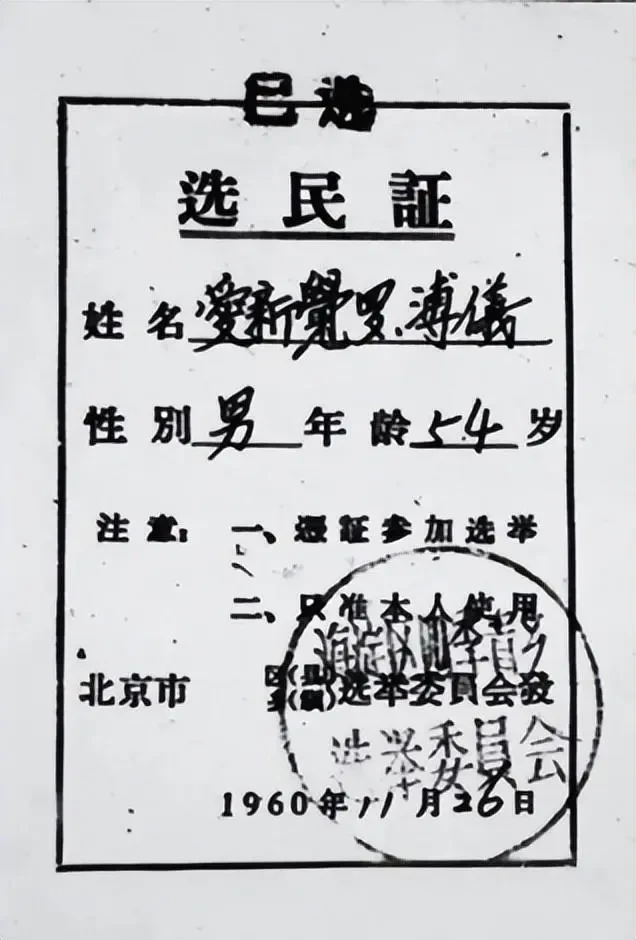 已选
选民証
姓名 愛新覺罗.溥儀
性别 男 年龄 54 岁
注意：一、憑証参加选举
二、只准本人使用
北京市 区(县)乡(镇)选举委員会发
选举委員会
1960年11月26日